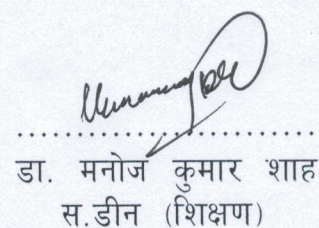 डा. मनोज कुमार शाह
स.डीन (शिक्षण)